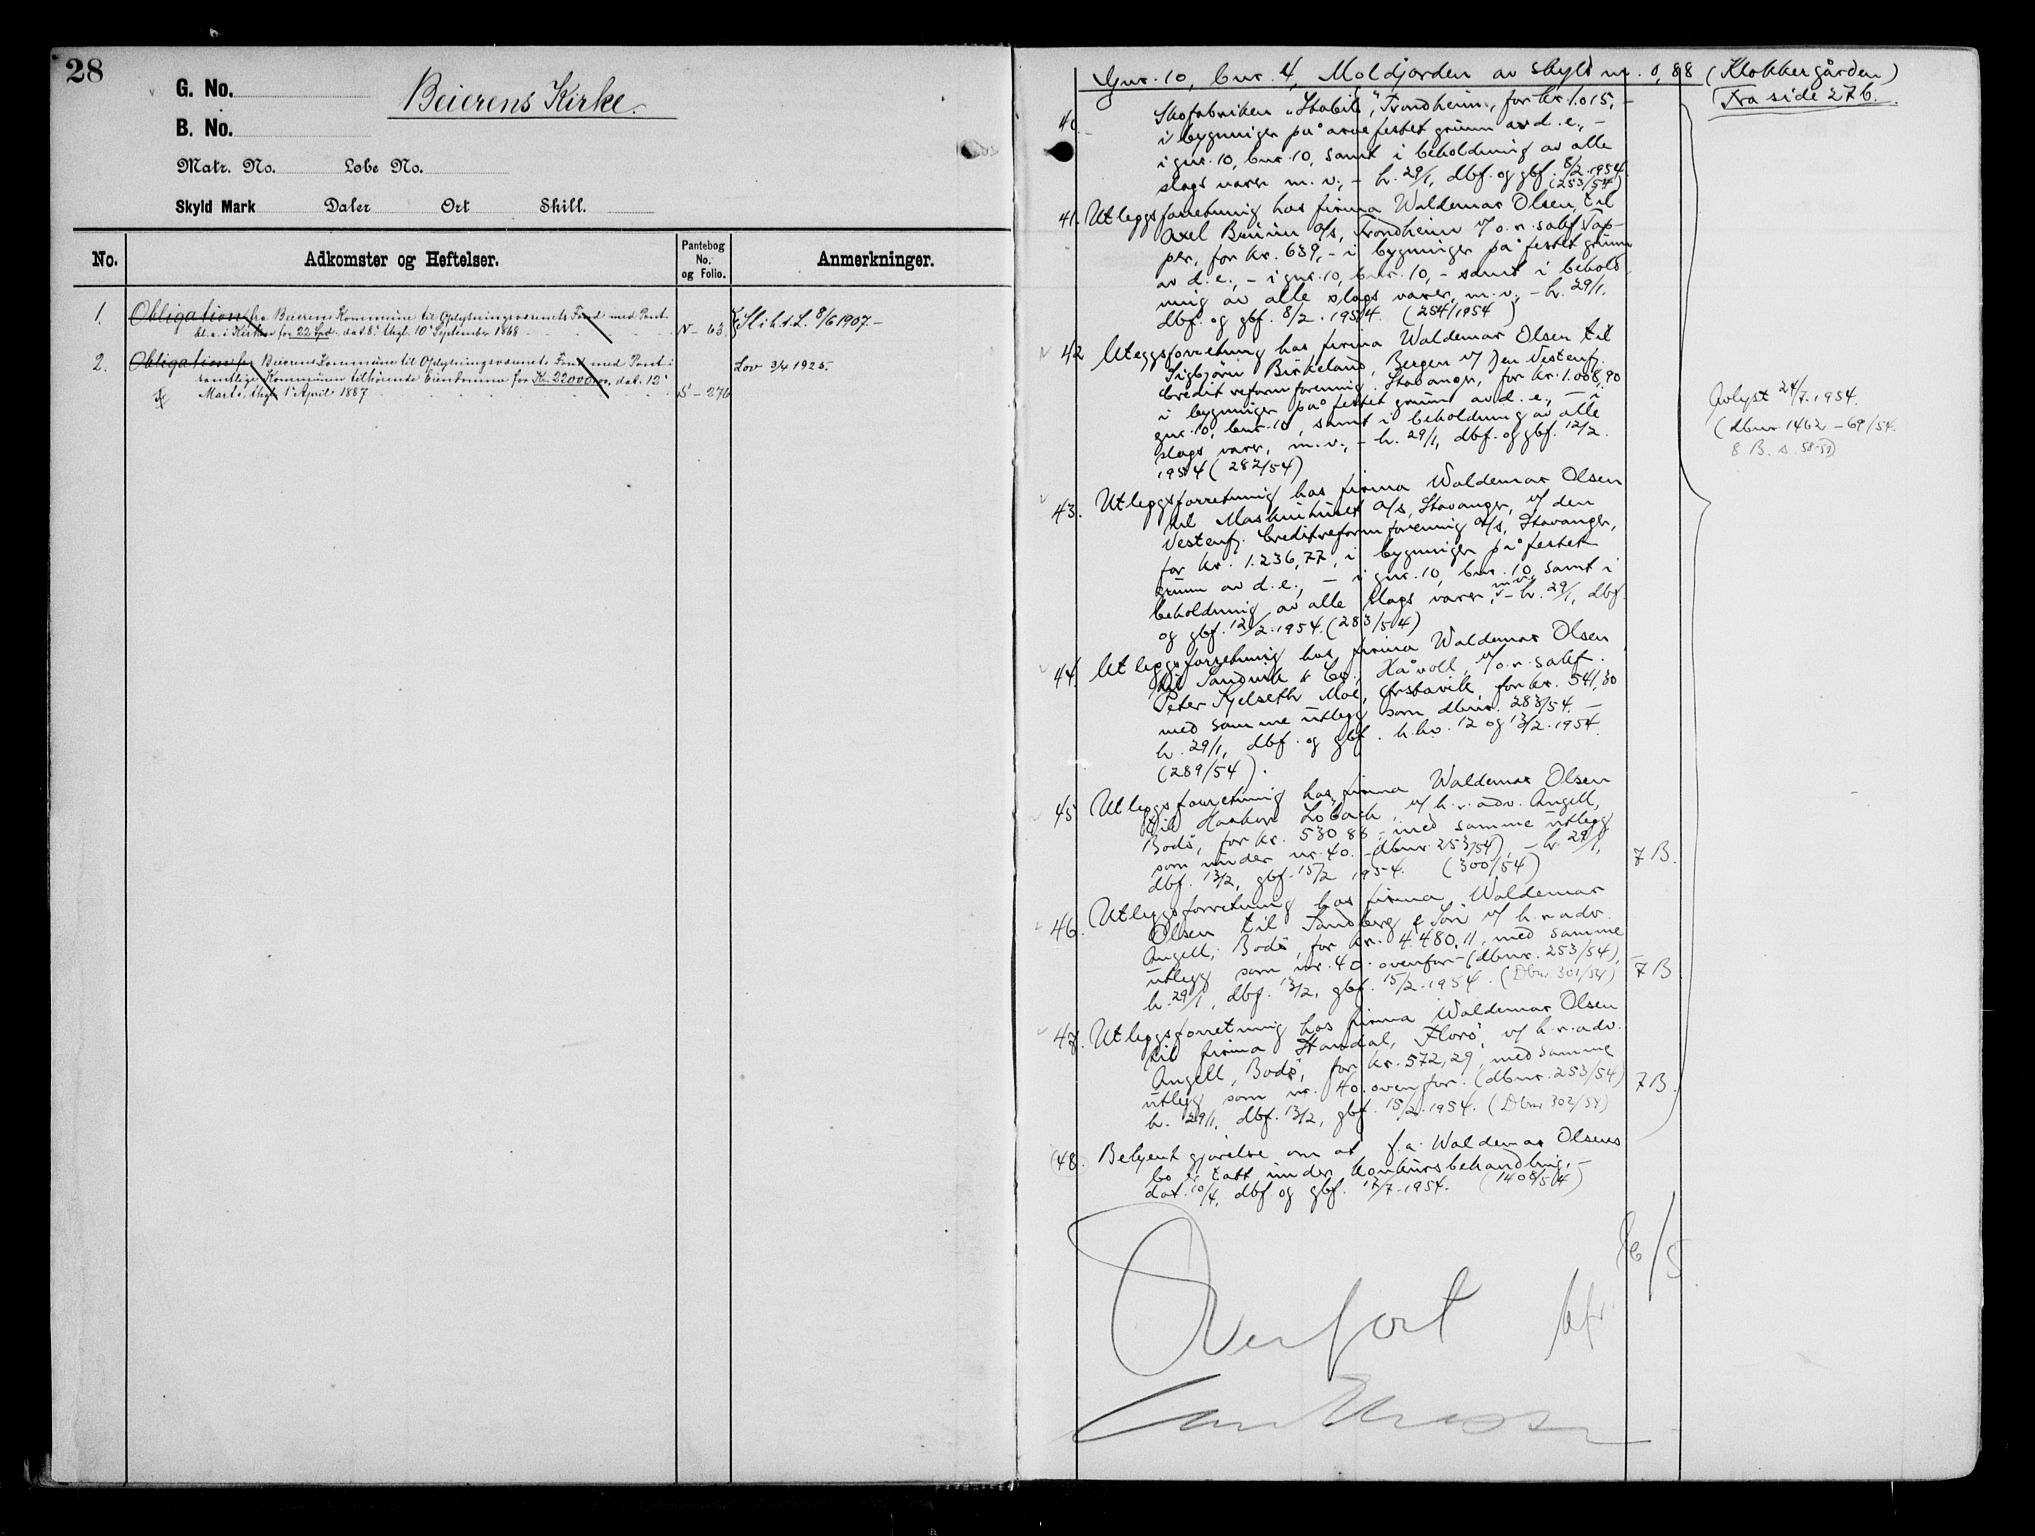 28
G. No.
Beierens Kirke.
B. No.
Matr. No. Løbe No.
Skyld Mark Daler Ort Skill.
No. Adkomster og Heftelser. Pantebog No. og Folio. Anmerkninger.
1. Obligation fra Beierens Kommune til Oplysningsvæsenets Fond med Pant
bl. a. i Kirken for 22 Spd. dat. 8. thgl. 10 September 1868 N - 63. Slik.t.L. 8/6 1907.-
2. Obligation fra Beierens Kommune til Oplysningsvæsenets Fond med Pant i
samtlige Kommunen tilhørende Eiendomme for Kr. 22000.00, dat. 12' Lov 3/4 1925.
Marts, thgl. 1' April 1887 S - 276
Gnr. 10, bnr. 4, Moldjorden av skyld m. 0,88 (Klokkergården)
Fra side 27b.
40 Skofabrikken "Stabil", Trondheim, for kr. 1.015,-
i bygninger på arvefestet grunn av d.e., -
i gnr. 10, bnr. 10, samt i beholdning av alle
slags varer m. v., - h. 29/1, dbf. og gbf. 8/2. 1954
(253/54)
41. Utleggsforretning hos firma Waldemar Olsen til
Axel Bruun a/s, Trondheim v/ o.r.sakf. Tap-
per, for kr. 639,- i bygninger på festet grunn
av d.e., - i gnr. 10, bnr. 10, - samt i behold-
ning av alle slags varer, m. v., - h. 29/1.
dbf. og gbf. 8/2. 1954 (254/1954)
42 Utleggsforretning hos firma Waldemar Olsen til
Sigbjørn Birkeland, Bergen v/ Den Vestenf.
Creditreformforening, Stavanger, for kr. 1.008,90
i bygninger på festet grunn av d.e., - i
gnr. 10, bnr. 10, samt i beholdning av alle
slags varer, m. v., - h. 29/1, dbf. og gbf. 12/2.
1954 (282/54)
Avlyst 24/7. 1954.
(dbnr. 1462 - 69/54.
8 B. s. 58-59)
43. Utleggsforretning hos firma Waldemar Olsen
til Maskinhuset a/s, Stavanger, v/ den
Vestenfj. Creditreformforening a/s, Stavanger,
for kr. 1.236,77, i bygninger på festet
grunn av d.e., - i gnr. 10, bnr. 10, samt i
beholdning av alle slags varer, m.v. - h. 29/1, dbf.
og gbf. 12/2. 1954. (283/54)
44. Utleggsforretning hos firma Waldemar Olsen
til Sandvik & Co., Håvoll, v/ o.r.sakf.
Peter Kjelseth Moe, Ørstavik, for kr. 541,30
med samme utlegg som dbnr. 283/54. -
h. 29/1, dbf. og gbf. h.hv. 12 og 13/2. 1954.
(289/54).
45 Utleggsforretning hos firma Waldemar Olsen
til Haakon Lobach, v/ h.r.adv. Angell,
Bodø, for kr. 530,88 - med samme utlegg
som under nr. 40. - dbnr. 253/54), - h. 29/1,
dbf. 13/2, gbf. 15/2 1954. (300/54) 7 B.
46. Utleggsforretning hos firma Waldemar
Olsen til Sandberg & Søn v/ h.r.adv.
Angell, Bodø, for kr. 4.480,11, med samme
utlegg som nr. 40. ovenfor - (dbnr. 253/54),
h. 29/1, dbf. 13/2, gbf. 15/2. 1954. (Dbnr 301/54) 7 B
47. Utleggsforretning hos firma Waldemar Olsen
til firma Standal, Florø, v/ h.r.adv.
Angell, Bodø, for kr. 572,29, med samme
utlegg som nr. 40. ovenfor. (dbnr. 253/54)
h. 29/1, dbf. 13/2, gbf. 15/2. 1954. (Dbnr 302/54) 7 B.
(48. Bekjentgjørelse om at f.a. Waldemar Olsens
bo er tatt under konkursbehandling, -
dat. 10/4, dbf. og gbf. 17/7. 1954. (1408/54)
Overført